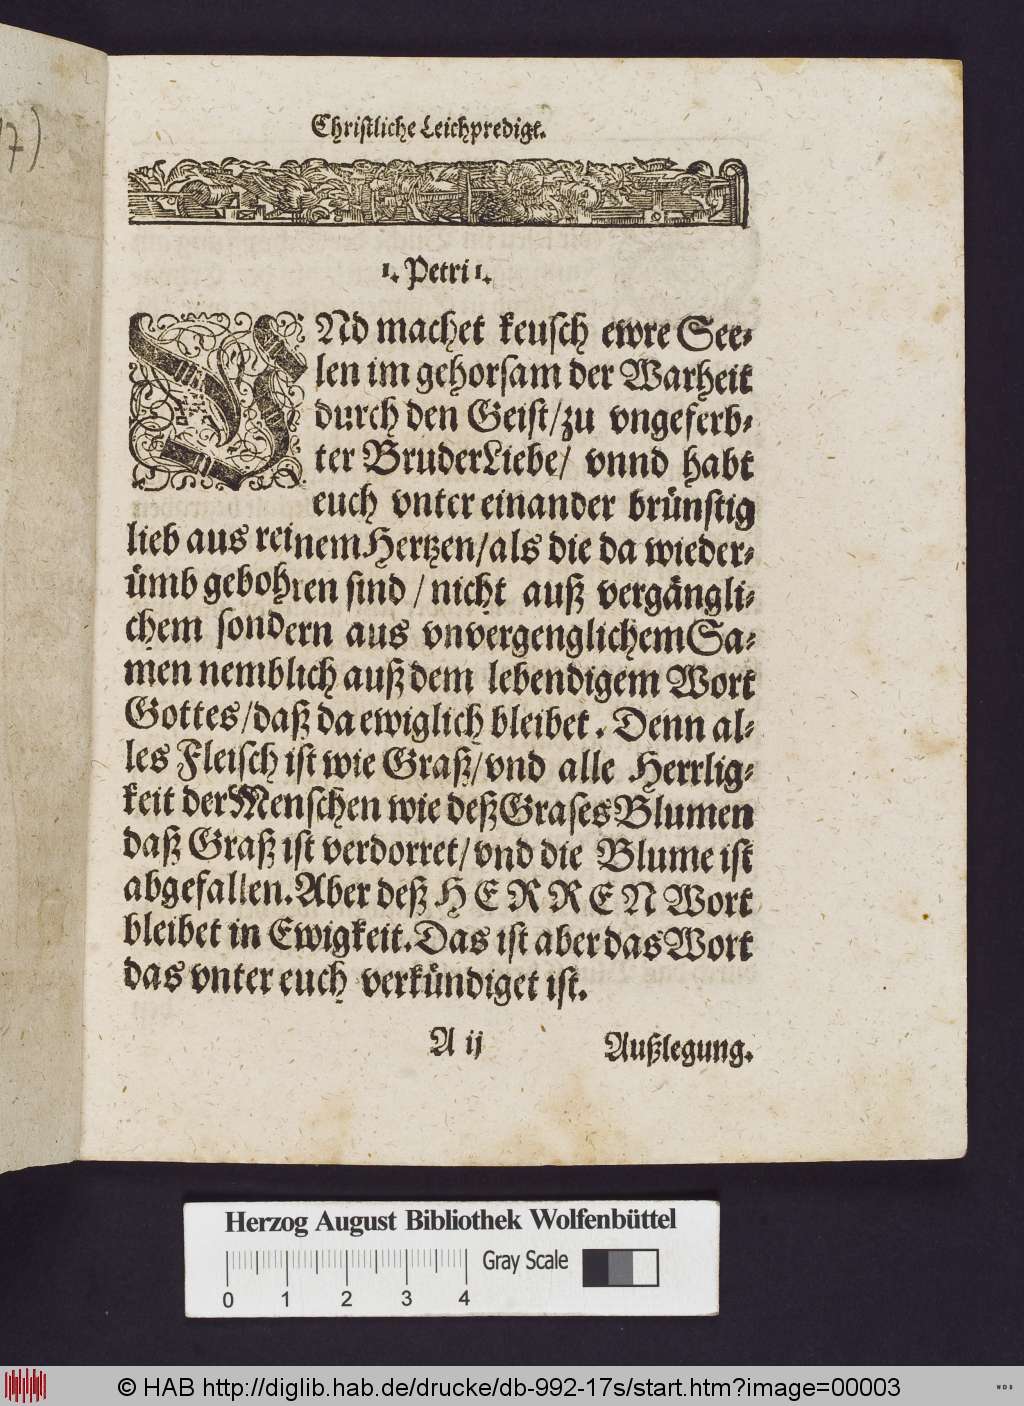 7)
Christliche Leichpredigt.
1. Petri 1.
VNd machet keusch ewre See-
len im gehorsam der Warheit
durch den Geist/zu vngeferb-
ter BruderLiebe/ vnnd habt
euch vnter einander brünstig
lieb aus reinem Hertzen/als die da wieder-
ümb gebohren sind / nicht auß vergängli-
chem sondern aus vnvergenglichem Sa-
men nemblich auß dem lebendigem Wort
Gottes/daß da ewiglich bleibet. Denn al-
les Fleisch ist wie Graß/vnd alle Herrlig-
keit der Menschen wie deß Grases Blumen
daß Graß ist verdorret/vnd die Blume ist
abgefallen. Aber deß HERREN Wort
bleibet in Ewigkeit. Das ist aber das Wort
das vnter euch verkündiget ist.
A ij Außlegung.
Herzog August Bibliothek Wolfenbüttel
Gray Scale
0 1 2 3 4
© HAB http://diglib.hab.de/drucke/db-992-17s/start.htm?image=00003